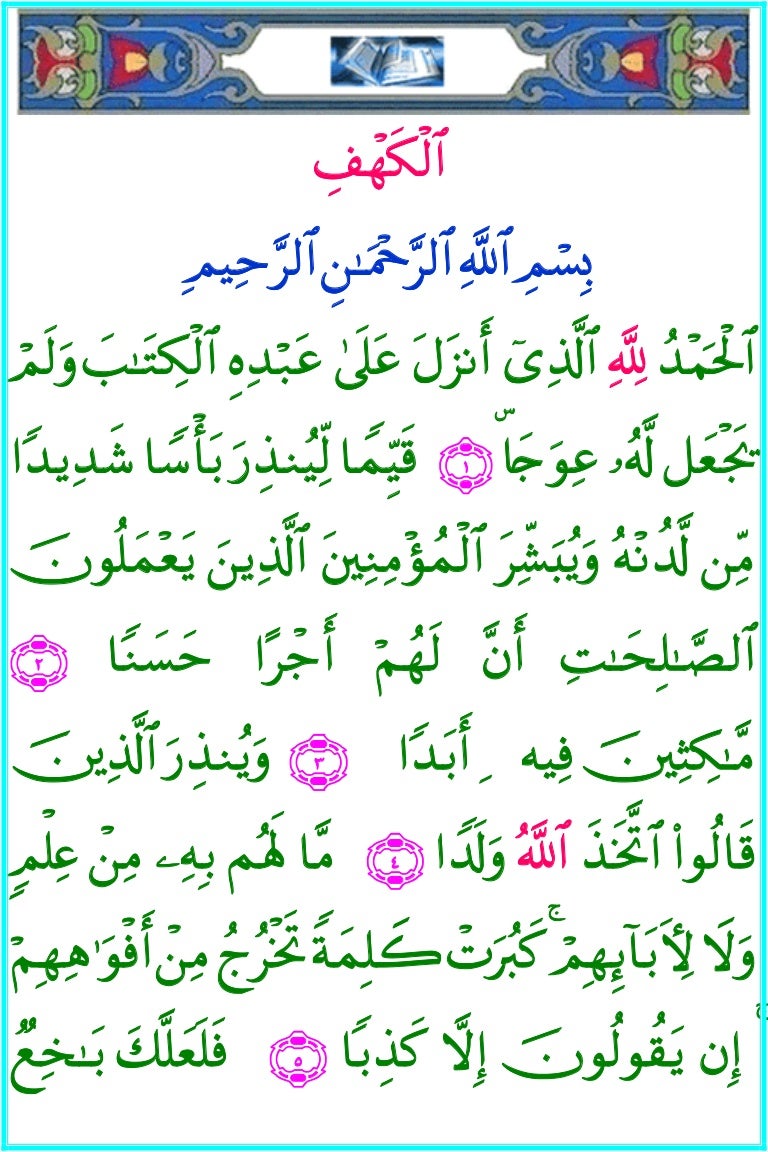 ٱلْكَهْفِ
بِسْمِ ٱللَّهِ ٱلرَّحْمَـٰنِ ٱلرَّحِيمِ
ٱلْحَمْدُ لِلَّهِ ٱلَّذِىٓ أَنزَلَ عَلَىٰ عَبْدِهِ ٱلْكِتَـٰبَ وَلَمْ
يَجْعَل لَّهُۥ عِوَجَاۜ ١ قَيِّمًا لِّيُنذِرَ بَأْسًا شَدِيدًا
مِّن لَّدُنْهُ وَيُبَشِّرَ ٱلْمُؤْمِنِينَ ٱلَّذِينَ يَعْمَلُونَ
ٱلصَّـٰلِحَـٰتِ أَنَّ لَهُمْ أَجْرًا حَسَنًا ٢
مَّـٰكِثِينَ فِيهِ أَبَدًا ٣ وَيُنذِرَ ٱلَّذِينَ
قَالُوا۟ ٱتَّخَذَ ٱللَّهُ وَلَدًا ٤ مَّا لَهُم بِهِۦ مِنْ عِلْمٍ
وَلَا لِأَبَآئِهِمْ ۚ كَبُرَتْ كَلِمَةً تَخْرُجُ مِنْ أَفْوَٰهِهِمْ ۚ
إِن يَقُولُونَ إِلَّا كَذِبًا ٥ فَلَعَلَّكَ بَـٰخِعٌ